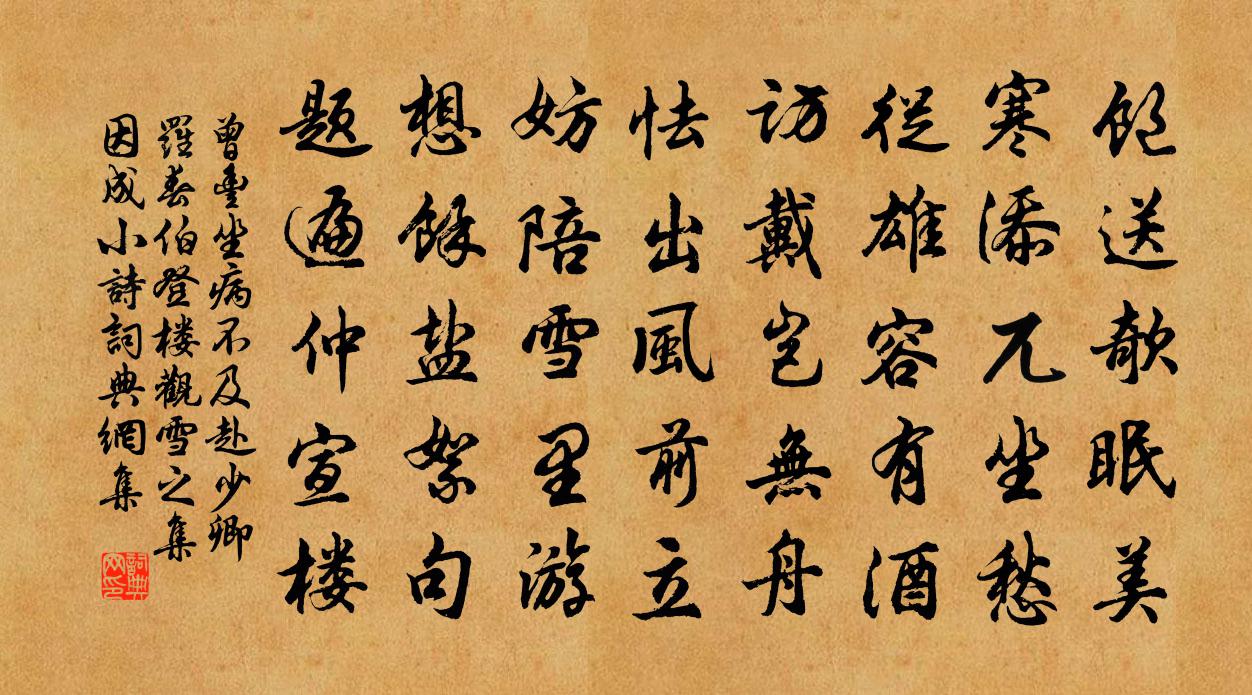 飽送欹眠美
寒添兀坐愁
從雄容有酒
訪戴豈無舟
怯出風前立
妨陪雪里游
想餘盐絮句
題遍仲宣楼
曾豐坐病不及赴少卿
羅春伯登楼觀雪之集
因成小詩詞典網集
詞典网印